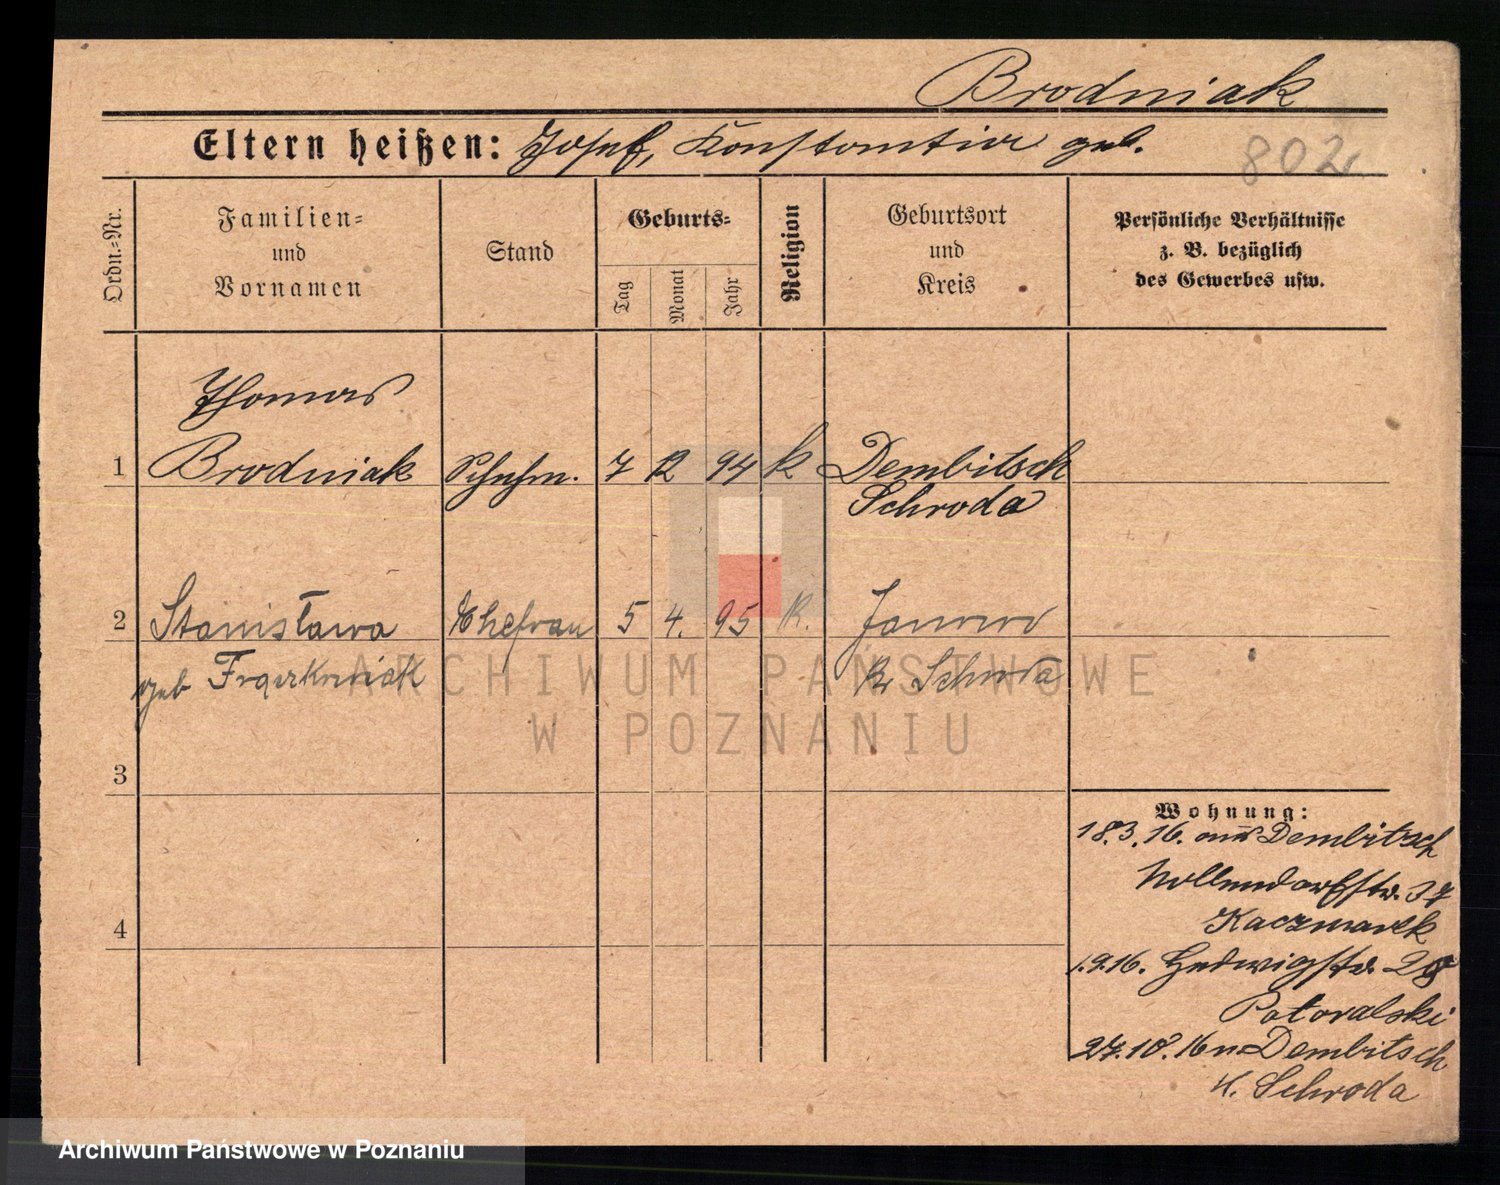 Brodniak
Eltern heißen: Josef, Konstantia geb.
802
Ordn=Nr.
Familien=
und
Vornamen
Stand
Geburts=
Tag
Monat
Jahr
Religion
Geburtsort
und
Kreis
Persönliche Verhältnisse
z. B. bezüglich
des Gewerbes usw.
Thomas
1 Brodniak Schuhm. 7 12 94 k Dembitsch
Schroda
2 Stanisława Ehefrau 5 4. 95 k.
geb
Kr Schroda
3
4
Wohnung:
18.3.16. aus Dembitsch
Nollendorfstr. 37
Kaczmarek
1.9.16. Hedwigstr. 28
27.10.16 n Dembitsch
K. Schroda
ARCHIWUM PAŃSTWOWE
W POZNANIU
Archiwum Państwowe w Poznaniu